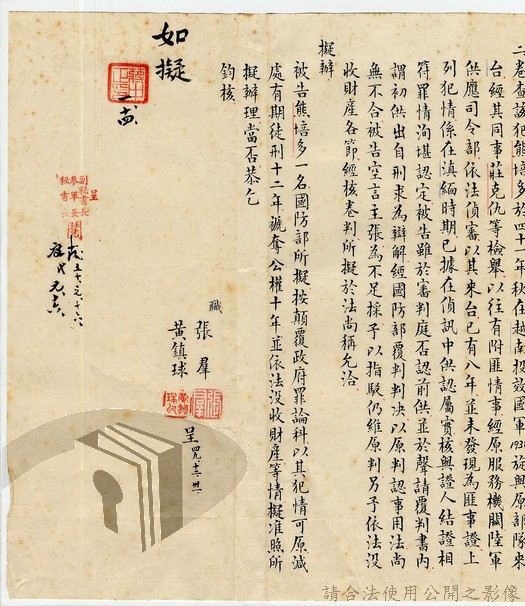 二卷查該犯熊培多於四十一年秋在越南投效國軍1938旅與原部隊來
台經其同事莊克仇等檢舉以往有附匪情事經原服務機關陸軍
供應司令部依法偵審以其來台已有八年並未發現為匪事證上
列犯情係在滇緬時期已據在偵訊中供認屬實核與證人結證相
符罪情洵堪認定被告雖於審判庭否認前供並於聲請覆判書內
謂初供出自刑求為辯解經國防部覆判判決以原判認事用法尚
無不合被告空言主張為不足採予以指駁仍維原判另予依法沒
收財產各節經核卷判所擬於法尚稱允洽
擬辦
被告熊培多一名國防部所擬按顛覆政府罪論科以其犯情可原減
處有期徒刑十二年褫奪公權十年並依法沒收財產等情擬准照所
擬辦理當否恭乞
鈞核
職 張羣
黃鎮球
呈 四九、十二、卅一
如擬
呈
副秘書長
參軍長
秘書長
閱
請合法使用公開之影像